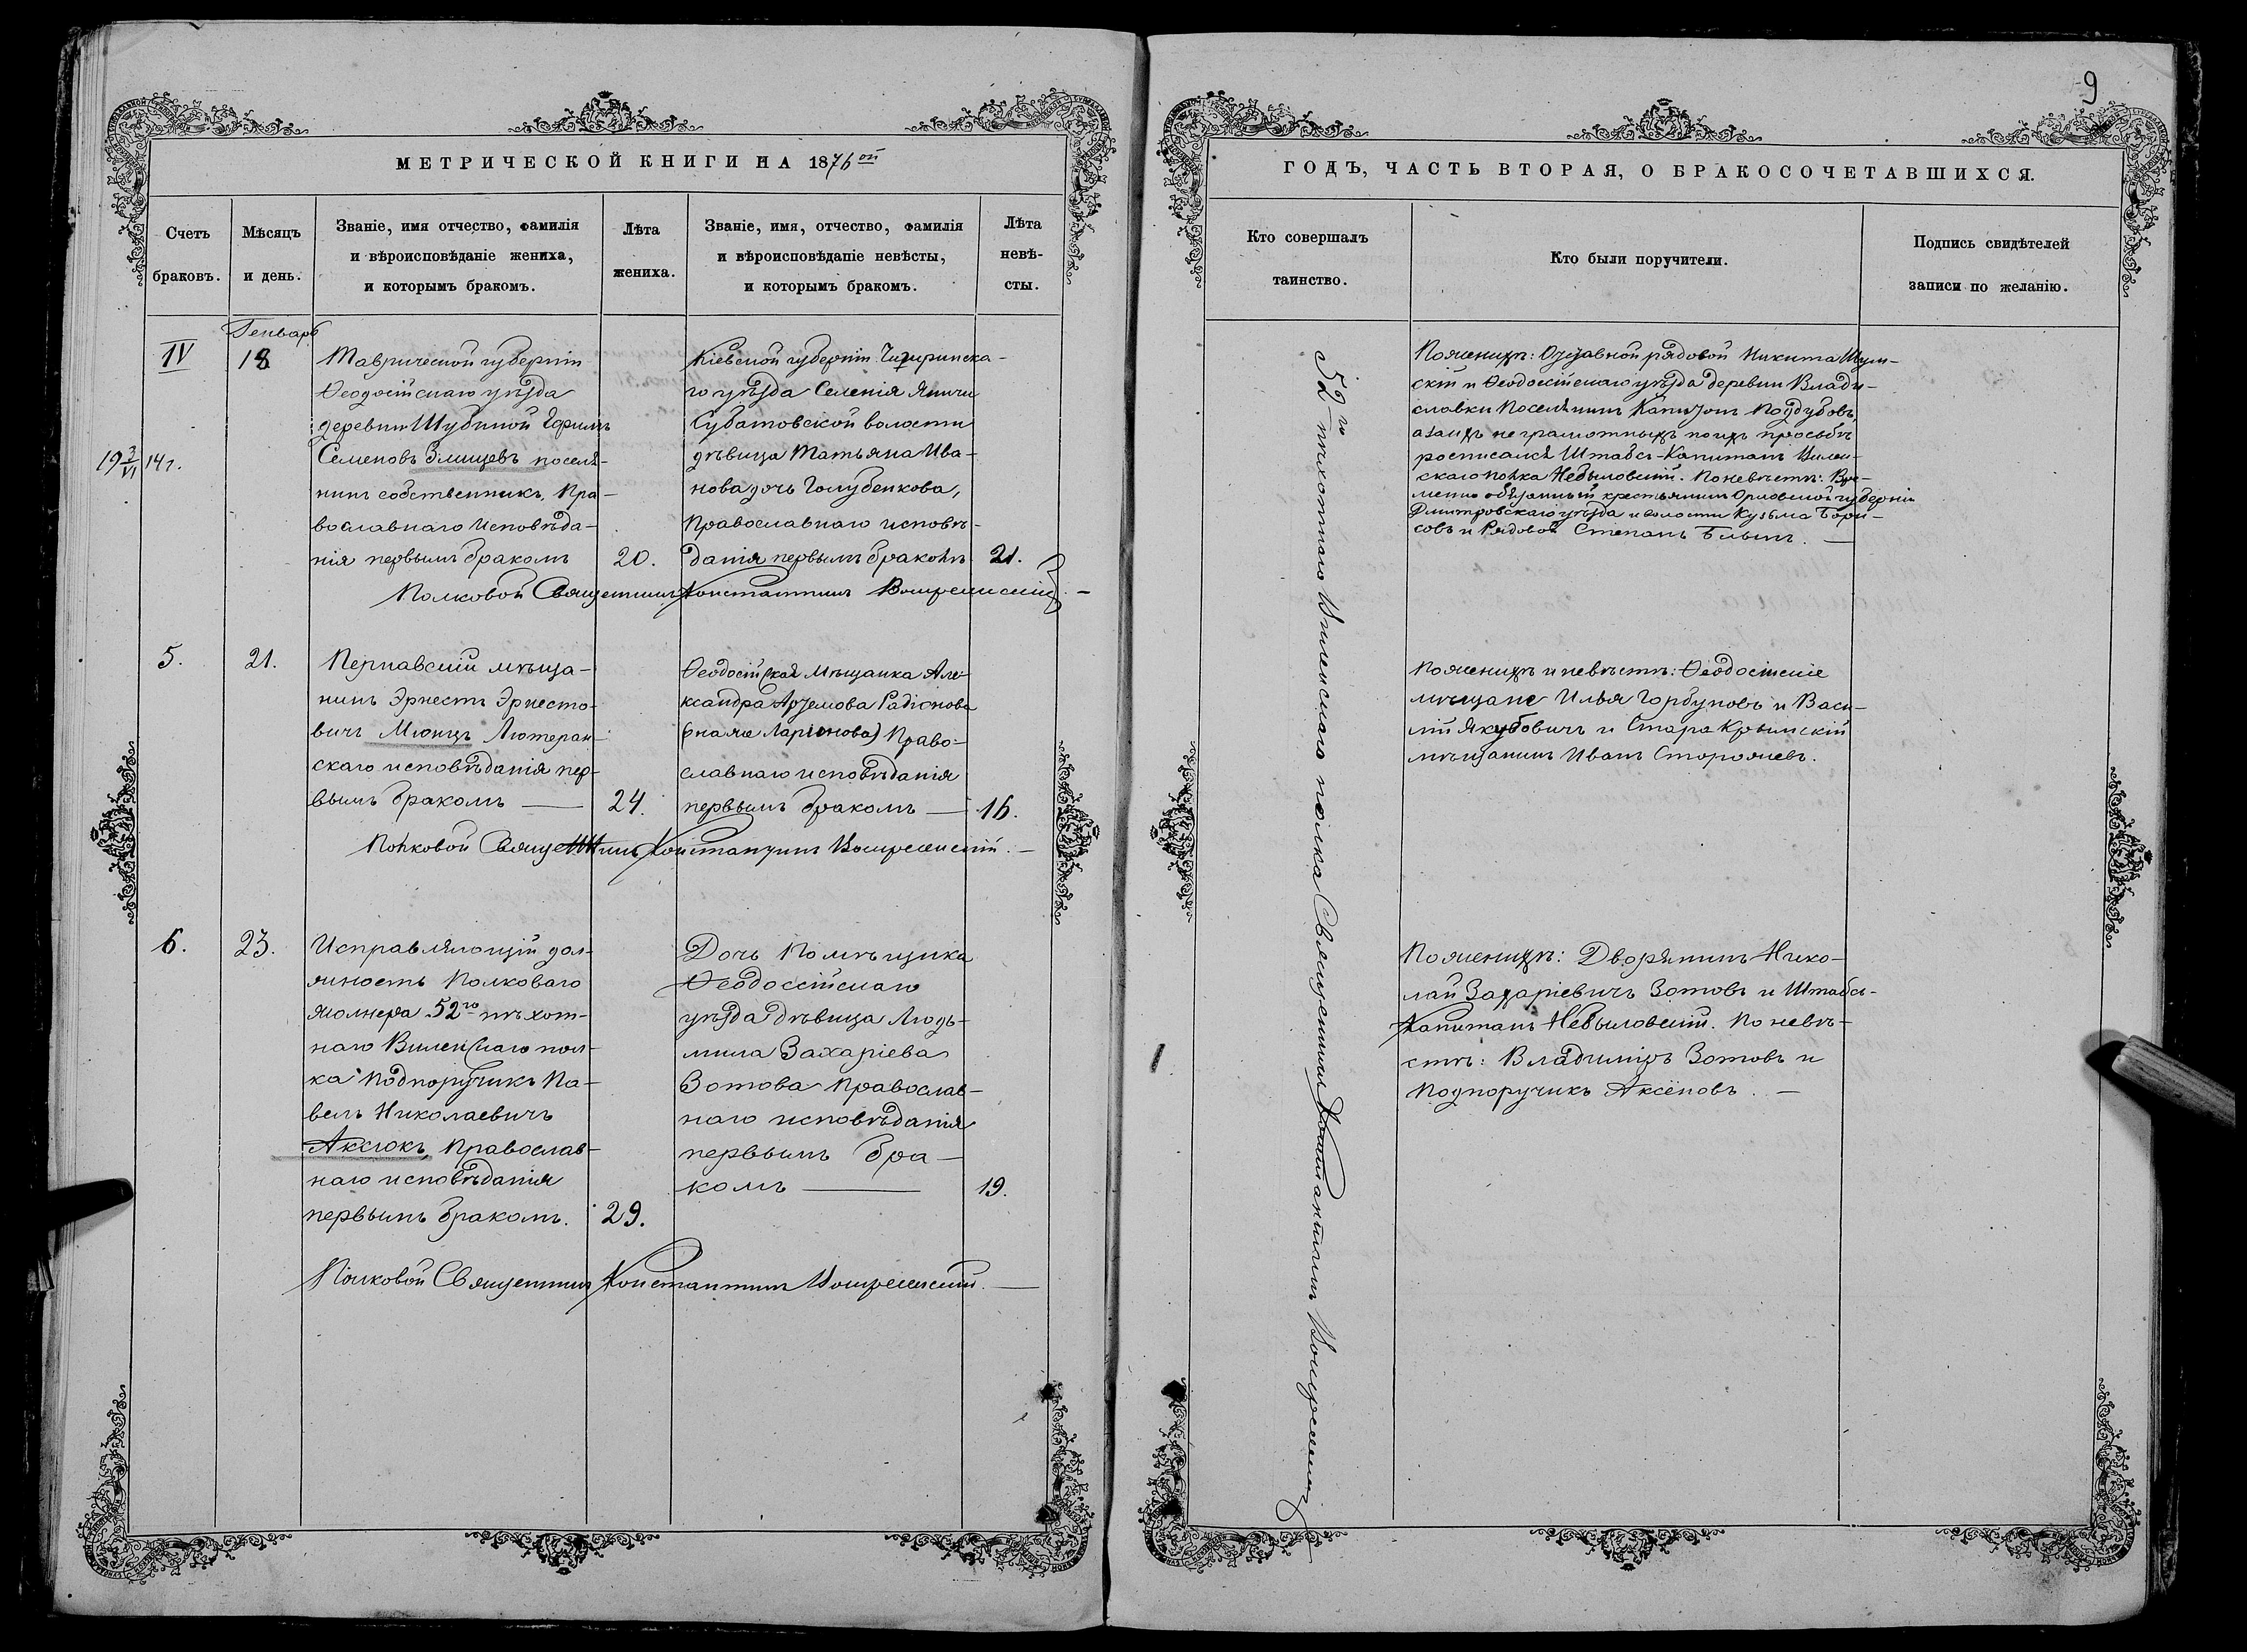 9
МЕТРИЧЕСКОЙ КНИГИ НА 1876ой
Счетъ
браковъ.
Мѣсяцъ
и день.
Званіе, имя отчество, фамилія
и вѣроисповѣданіе жениха,
и которымъ бракомъ.
Лѣта
жениха.
Званіе, имя, отчество, фамилія
и вѣроисповѣданіе невѣсты,
и которымъ бракомъ.
Лѣта
невѣ-
сты.
Генварь
IV
18
19 3/VI 14 г.
Таврической губерніи
Ѳеодосійскаго уѣзда
деревни Шубиной Ефимъ
Семеновъ поселя-
нинъ собственникъ, Пра-
вославнаго исповѣда-
нія первымъ бракомъ
20.
Кіевской губерніи Чигиринска-
го уѣзда Селенія
Субатовской волости
дѣвица Татьяна Ива-
нова дочь Голубенкова,
Православнаго исповѣ-
данія первымъ бракомъ
21.
Полковой Священникъ Константинъ Воскресенскій. —
5.
21.
Пернавскій мѣща-
нинъ Эрнестъ Эрнесто-
вичъ Мюнцъ Лютеран-
скаго исповѣданія пер-
вымъ бракомъ —
24.
Ѳеодосійская Мѣщанка Але-
ксандра Артемова Радіонова
(она же Ларіонова) Право-
славнаго исповѣданія
первымъ бракомъ —
16.
Полковой Священникъ Константинъ Воскресенскій. —
6.
23.
Исправляющій дол-
жность Полковаго
жолнера 52го пѣхот-
наго Виленскаго пол-
ка Подпоручикъ Па-
велъ Николаевичъ
Аксюкъ, Православ-
наго исповѣданія
первымъ бракомъ.
29.
Дочь Помѣщика
Ѳеодоссійскаго
уѣзда дѣвица Людь-
мила Захаріева
Зотова Православ-
наго исповѣданія
первымъ бра-
комъ —
19.
Полковой Священникъ Константинъ Воскресенскій. —
ГОДЪ, ЧАСТЬ ВТОРАЯ, О БРАКОСОЧЕТАВШИХСЯ.
Кто совершалъ
таинство.
Кто были поручители.
Подпись свидѣтелей
записи по желанію.
52го пѣхотнаго Виленскаго полка Священникъ Константинъ Воскресенскій
По женихѣ: Отставной рядовой Никита Шум-
скій и Ѳеодоссійскаго уѣзда деревни Влади-
славки Поселянинъ Поддубовъ,
а за ихъ неграмотныхъ по ихъ просьбѣ
росписался Штабсъ-Капитанъ Вилен-
скаго полка Небыловскій. По невѣстѣ: Вре-
менно обязанный крестьянинъ Орловской губерніи
Дмитровскаго уѣзда и волости Кузьма Бори-
совъ и Рядовой Степанъ Ильинъ. —
По женихѣ и невѣстѣ: Ѳеодосійскіе
мѣщане Илья Горбуновъ и Васи-
лій Якубовичъ и Стара Крымскій
мѣщанинъ Иванъ Сторожевъ.
По женихѣ: Дворянинъ Нико-
лай Захаріевичъ Зотовъ и Штабсъ-
Капитанъ Небыловскій. По невѣ-
стѣ: Владиміръ Зотовъ и
Подпоручикъ Аксёновъ. —